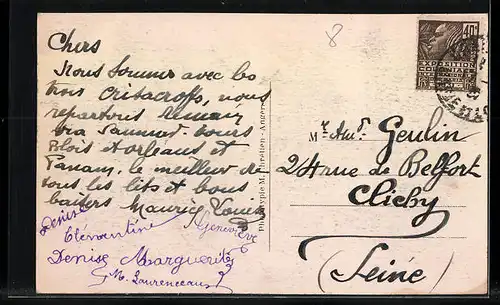 Chers
Nous sommes avec les
trois
nous
repartons demain
via Saumur. Tours
Blois et Orléans et
Panam, le meilleur de
tous, les lits et bons
baisers Maurice Louis
Denise
Geneviève
Clémentine
Denise Marguerite
M. Laurenceau
8
Phototypie M. Chrétien - Angers
40c
EXPOSITION
COLONIALE
Mr And. Geulin
24 rue de Belfort
Clichy
(Seine)